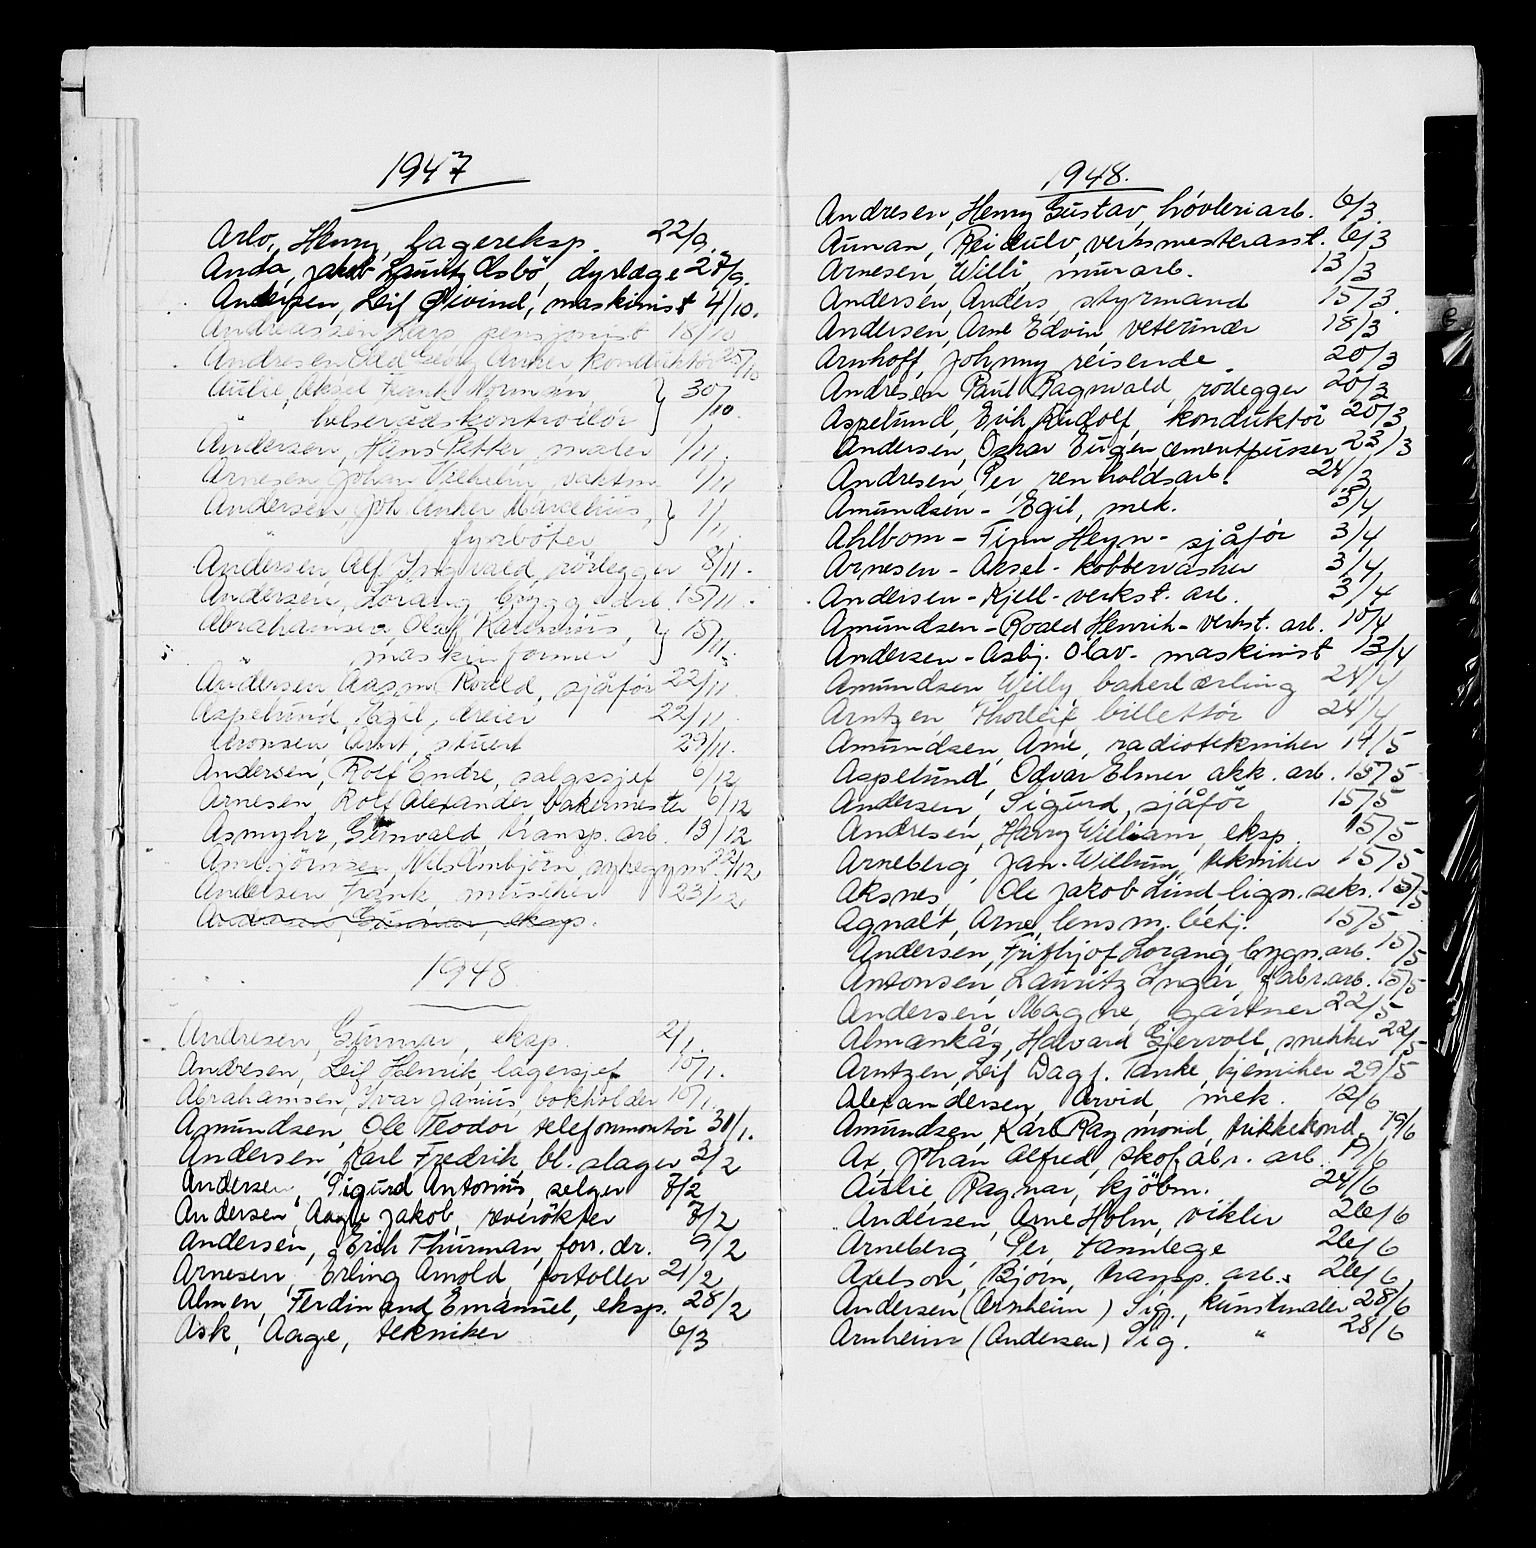 1947
Arbo, Henny, lagereksp. 22/9.
Anda, Jakob Lauritz Osbö, dyrlæge 27/9.
Andersen, Leif Øivind, maskinist 4/10.
Andreassen Lars pensjonist 18/10
Andresen Odd Georg Anker konduktör 25/10
Aulie, Aksel Frank Norman, } 30/10
helserådskontrollör
Andersen, Hans Petter, maler 1/11.
Arnesen, Johan Vilhelm, vaktm. 1/11
Andersen, Joh. Anker Marcelius, } 1/11.
fyrböter
Andersen, Alf Ingvald, rörlegger 8/11.
Andersen, Lorang, bygg. arb. 15/11.
Abrahamsen, Olaf Karenius, } 15/11.
maskinformer
Andersen, Aasm. Roald, sjåfør 22/11.
Aspelund, Egil, dreier 22/11.
Aronsen, stuert 29/11.
Andersen, Rolf Endre, salgssjef 6/12
Arnesen, Rolf Alexander, bakermester 6/12
Asmyhr, transp. arb. 13/12
Nils Arnbjörn, sykegym. 22/12
Andersen, Frank, musiker 23/12
Andresen, Gunnar, eksp.
1948
Andresen, Gunnar, eksp. 2/1.
Andresen, Leif Henrik, lagersjef 10/1.
Abrahamsen, Ivar Janius, bokholder 10/1.
Amundsen, Ole Teodor, telefonmontör 31/1.
Andersen, Karl Fredrik, bl. slager 3/2
Andersen, Sigurd Antonius, selger 7/2
Andersen, Aage Jakob, røverökter 7/2
Andersen, Erik Thurman, forr. dr. 9/2
Arnesen, Erling Arnold, fortoller 21/2
Almen, Ferdinand Emanuel, eksp. 28/2
Ask, Aage, tekniker 6/3
1948.
Andresen, Henry Gustav, hövleriarb. 6/3.
Aunan, Reidulv, verksmesterasst. 6/3
Arnesen, Willi, murarb. 13/3
Andersen, Anders, styrmand 15/3.
Andersen, Arne Edvin, veterinær 18/3
Arnhoff, Johnny, reisende 20/3
Andresen Paul Ragnvald, rörlegger 20/3
Aspelund, Erik Rudolf, konduktör 20/3
Andersen, Oskar Eugen, cementpusser 23/3
Andresen, Per, renholdsarb. 24/3
Amundsen - Egil, mek. 3/4
Ahlbom - Finn Heyn - sjåför 3/4
Arnesen - Aksel - kobbervasker 3/4
Andersen - Kjell - verkst. arb. 3/4
Amundsen - Roald Henrik - verkst. arb. 10/4
Andersen - Asbj. Olav - maskinist 13/4
Amundsen Willy, bakerlærling 24/4
Arntzen Thorleif, billettör 24/4
Amundsen, Arne, radiotekniker 14/5
Aspelund, Odvar Elmer akk. arb. 15/5
Andersen, Sigurd, sjåför 15/5
Andresen, Harry William, eksp. 15/5
Arneberg, Jan-Willum, tekniker 15/5
Aksnes, Ole Jakob Lind-lign. sekr. 15/5
Agnalt, Arne, lensm. betj. 15/5
Andersen, Frithjof Lorang, bygn. arb. 15/5
Antonsen, Lauritz Ingar, fabr. arb. 15/5
Andersen, Magne, gartner 22/5
Almankås, Halvard Gjervoll, snekker 22/5
Arntzen, Leif Dagf. Tanke, kjemiker 29/5
Alexandersen, Arvid, mek. 12/6
Amundsen, Karl Raymond, trikkekond. 19/6
Ax, Johan Alfred, skofabr. arb. 19/6
Aulie, Ragnar, kjöbm. 24/6
Andersen, Arne Holm, vikler 26/6
Arneberg, Per, tannlege 26/6
Axelson, Björn, transp. arb. 26/6
Andersen (Arnheim) Sig., kunstmaler 28/6
Arnheim (Andersen) Sig. " 28/6